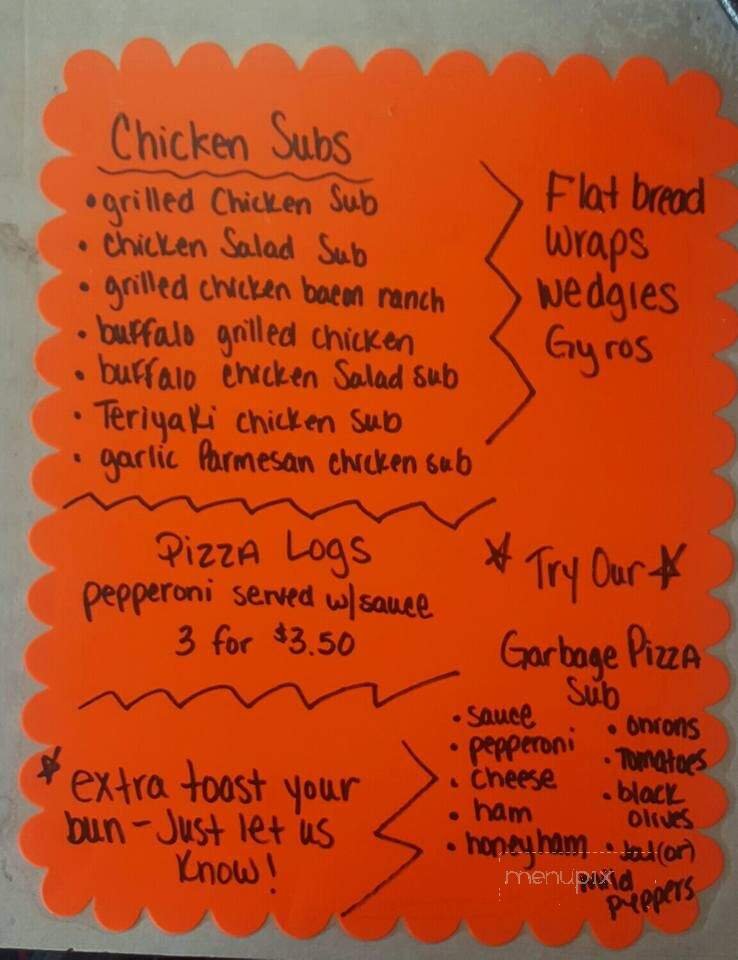 Chicken Subs
• grilled Chicken Sub
• chicken Salad Sub
• grilled chicken bacon ranch
• buffalo grilled chicken
• buffalo chicken Salad sub
• Teriyaki chicken sub
• garlic Parmesan chicken sub
Flat bread
Wraps
Wedgies
Gyros
Pizza Logs
pepperoni served w/sauce
3 for $3.50
Try Our
Garbage Pizza
Sub
• sauce
• pepperoni
• cheese
• ham
• honey ham
• onions
• Tomatoes
• black
olives
(or)
mild
peppers
extra toast your
bun - Just let us
Know!
menupix